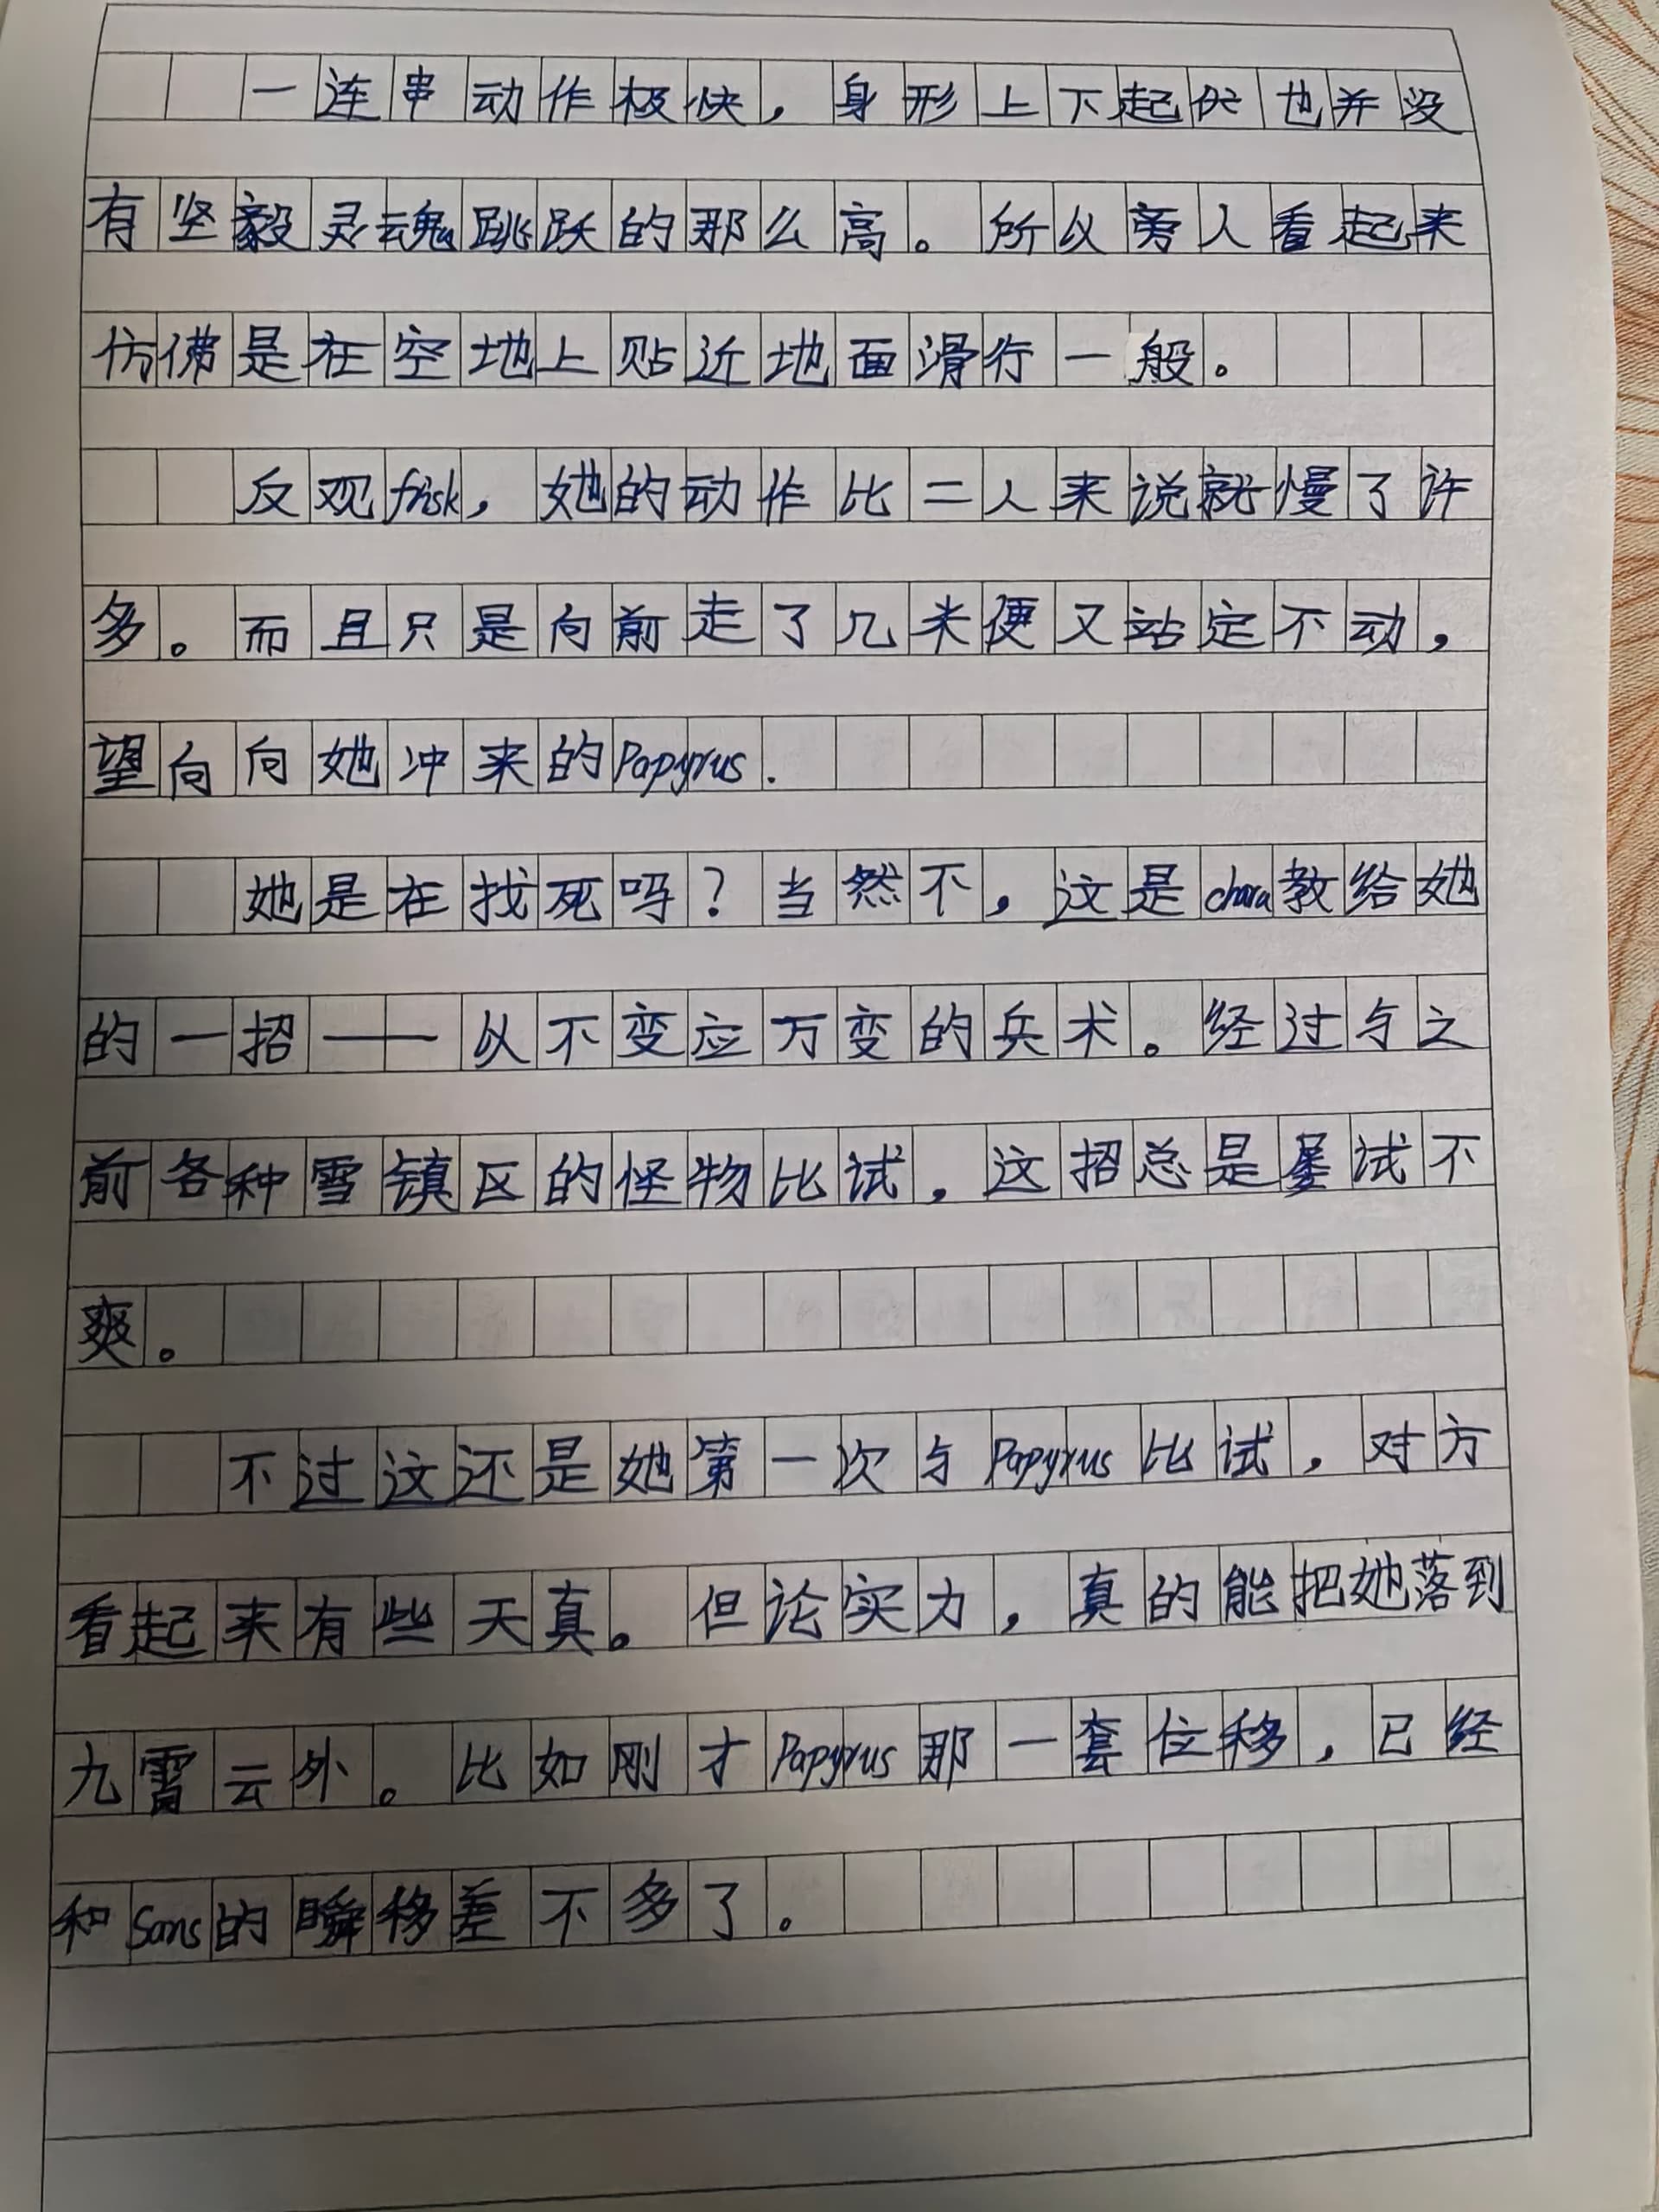 一连串动作极快，身形上下起伏也并没
有坚毅灵魂跳跃的那么高。所以旁人看起来
仿佛是在空地上贴近地面滑行一般。
反观frisk，她的动作比二人来说就慢了许
多。而且只是向前走了几米便又站定不动，
望向向她冲来的Papyrus.
她是在找死吗？当然不，这是chara教给她
的一招——以不变应万变的兵术。经过与之
前各种雪镇区的怪物比试，这招总是屡试不
爽。
不过这还是她第一次与Papyrus比试，对方
看起来有些天真。但论实力，真的能把她落到
九霄云外。比如刚才Papyrus那一套位移，已经
和Sans的瞬移差不多了。